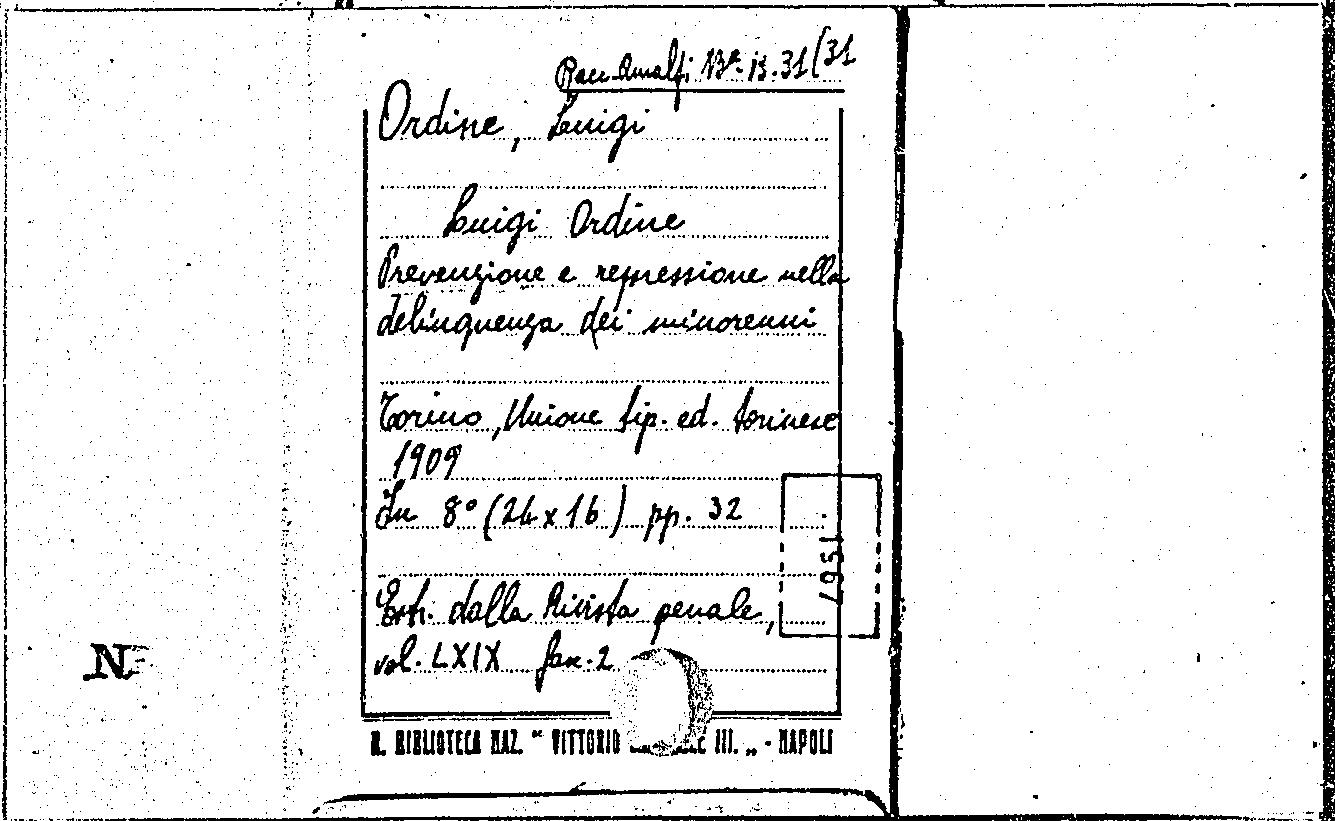 Racc. Amalfi Bª. B. 31(31
Ordine, Luigi
Luigi Ordine
Prevenzione e repressione nella
delinquenza dei minorenni
Torino, Unione tip. ed. torinese
1909
In 8° (24x16) pp. 32
Estr. dalla Rivista penale,
vol. LXIX fasc. 2
1567
N
R. BIBLIOTECA NAZ. " VITTORIO III. „ - NAPOLI